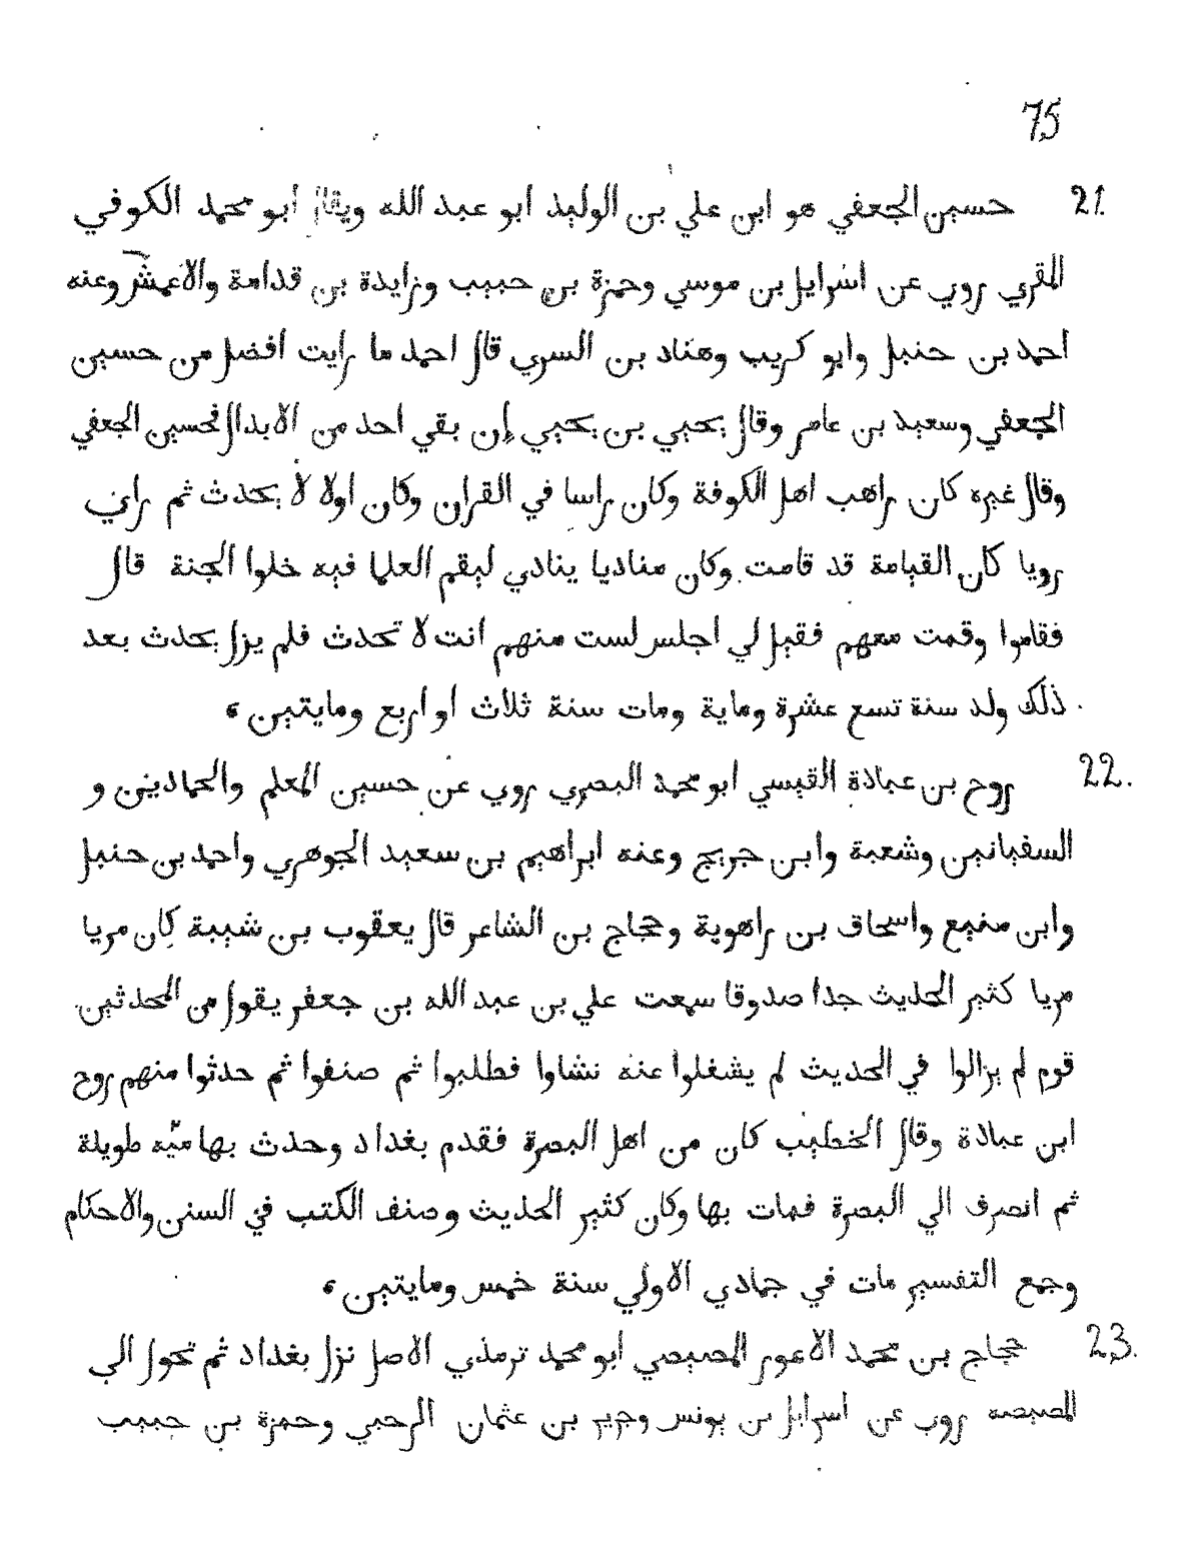 75
21. حسين الجعفي هو ابن علي بن الوليد ابو عبد الله ويقال ابو محمد الكوفي
المقري روي عن اسرايل بن موسي وحمزة بن حبيب وزايدة بن قدامة والاعمش وعنه
احمد بن حنبل وابو كريب وهناد بن السري قال احمد ما رايت افضل من حسين
الجعفي وسعيد بن عامر وقال يحيي بن يحيي إن بقي احد من الابدال فحسين الجعفي
وقال غيره كان راهب اهل الكوفة وكان راسا في القران وكان اولا لا يحدث ثم راي
رويا كان القيامة قد قامت وكان مناديا ينادي ليقم العلما فيد خلوا الجنة قال
فقاموا وقمت معهم فقيل لي اجلس لست منهم انت لا تحدث فلم يزل يحدث بعد
ذلك ولد سنة تسع عشرة وماية ومات سنة ثلاث او اربع ومايتين ،
22. روح بن عبادة القيسي ابو محمد البصري روي عن حسين المعلم والحمادين و
السفيانين وشعبة وابن جريج وعنه ابراهيم بن سعيد الجوهري واحمد بن حنبل
وابن منيع واسحاق بن راهوية وحجاج بن الشاعر قال يعقوب بن شيبة كان مريا
مريا كثير الحديث جدا صدوقا سمعت علي بن عبد الله بن جعفر يقول من المحدثين
قوم لم يزالوا في الحديث لم يشغلوا عنه نشاوا فطلبوا ثم صنفوا ثم حدثوا منهم روح
ابن عبادة وقال الخطيب كان من اهل البصرة فقدم بغداد وحدث بها مدّه طويلة
ثم انصرف الي البصرة فمات بها وكان كثير الحديث وصنف الكتب في السنن والاحكام
وجمع التفسير مات في جمادي الاولي سنة خمس ومايتين ،
23. حجاج بن محمد الاعور المصيصي ابو محمد ترمذي الاصل نزل بغداد ثم تحول الي
المصيصه روي عن اسرايل بن يونس وجرير بن عثمان الرحبي وحمزة بن حبيب